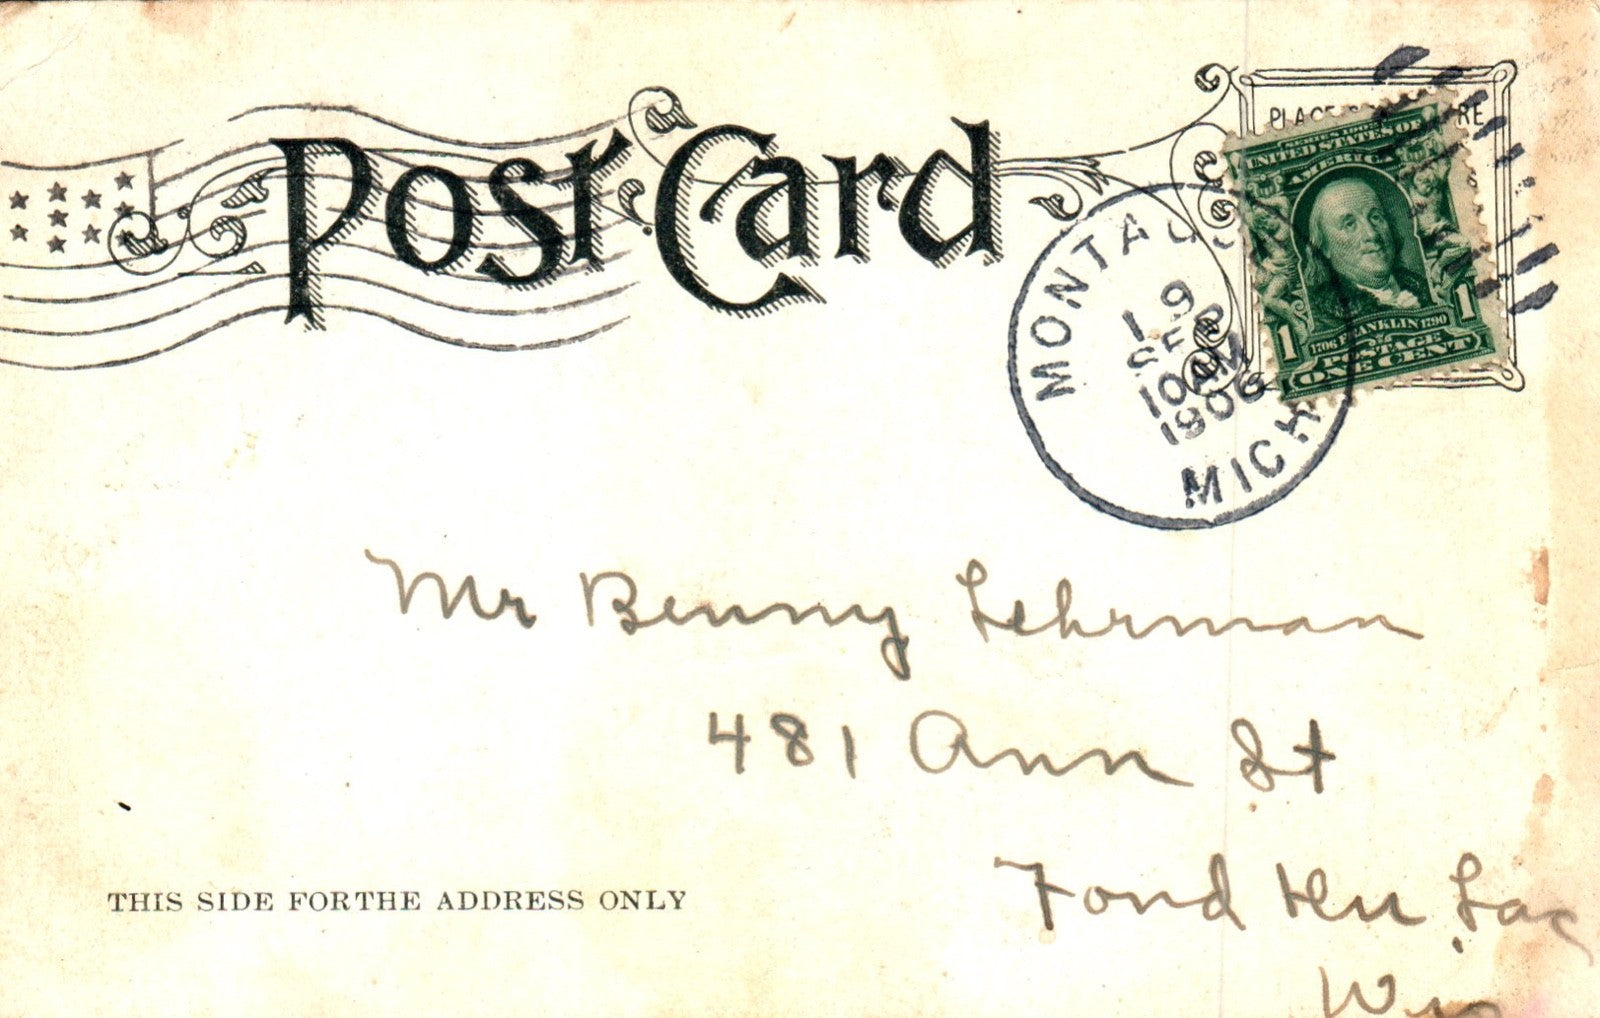 Post Card
PLACE RE
SERIES 1902
UNITED STATES OF
AMERICA
1706 FRANKLIN 1790
1 1
POSTAGE
ONE CENT
MONTA
SEP
10AM
1906
MICH
Mr Benny Lehrman
481 Ann St
Fond du Lac
Wis
THIS SIDE FOR THE ADDRESS ONLY